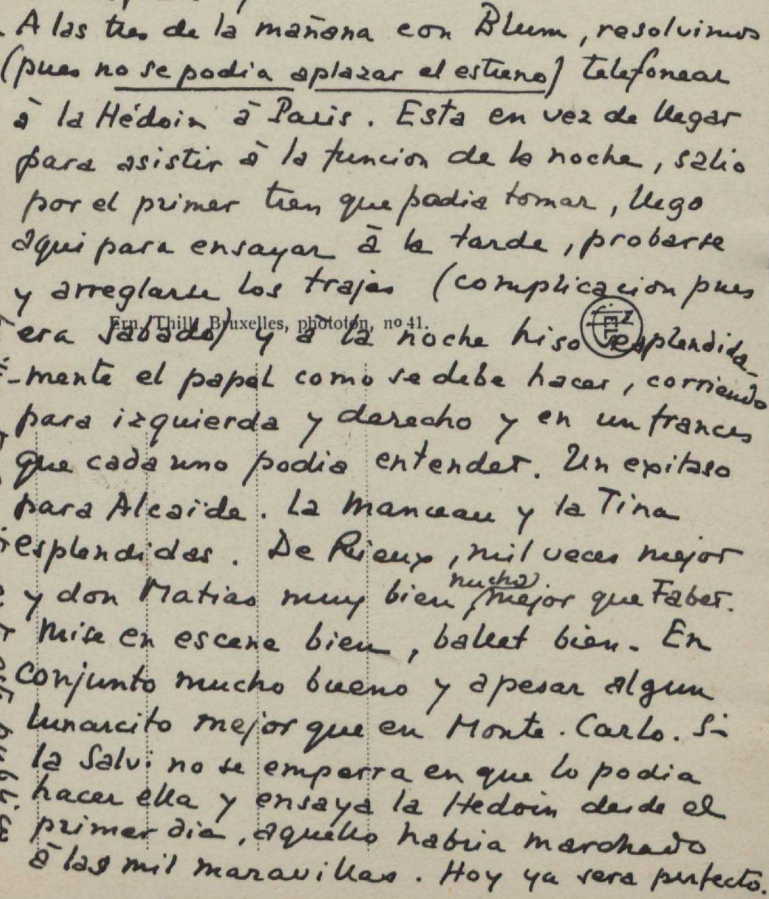 A las tres de la mañana con Blum, resolvimos
(pues no se podia aplazar el estreno) telefonear
à la Hédoin à Paris. Esta en vez de llegar
para asistir à la funcion de la noche, salio
por el primer tren que podia tomar, llego
aqui para ensayar à la tarde, probarse
y arreglarse los trajes (complicacion pues
era sabado) y à la noche hiso esplendida-
Ern. Thill, Bruxelles, phototyp, nº 41.
mente el papel como se debe hacer, corriendo
para izquierda y derecho y en un frances
que cada uno podia entender. Un exitaso
para Alcaïde. La Manceau y la Tina
esplendidas. De Rieux, mil veces mejor
y don Matias muy bien, mucho mejor que Faber.
Mise en escene bien, ballet bien. En
conjunto mucho bueno y apesar algun
lunarcito mejor que en Monte-Carlo. Si
la Salvi no se emperra en que lo podia
hacer ella y ensaya la Hedoin desde el
primer dia, aquello habria marchado
à las mil maravillas. Hoy ya sera perfecto.